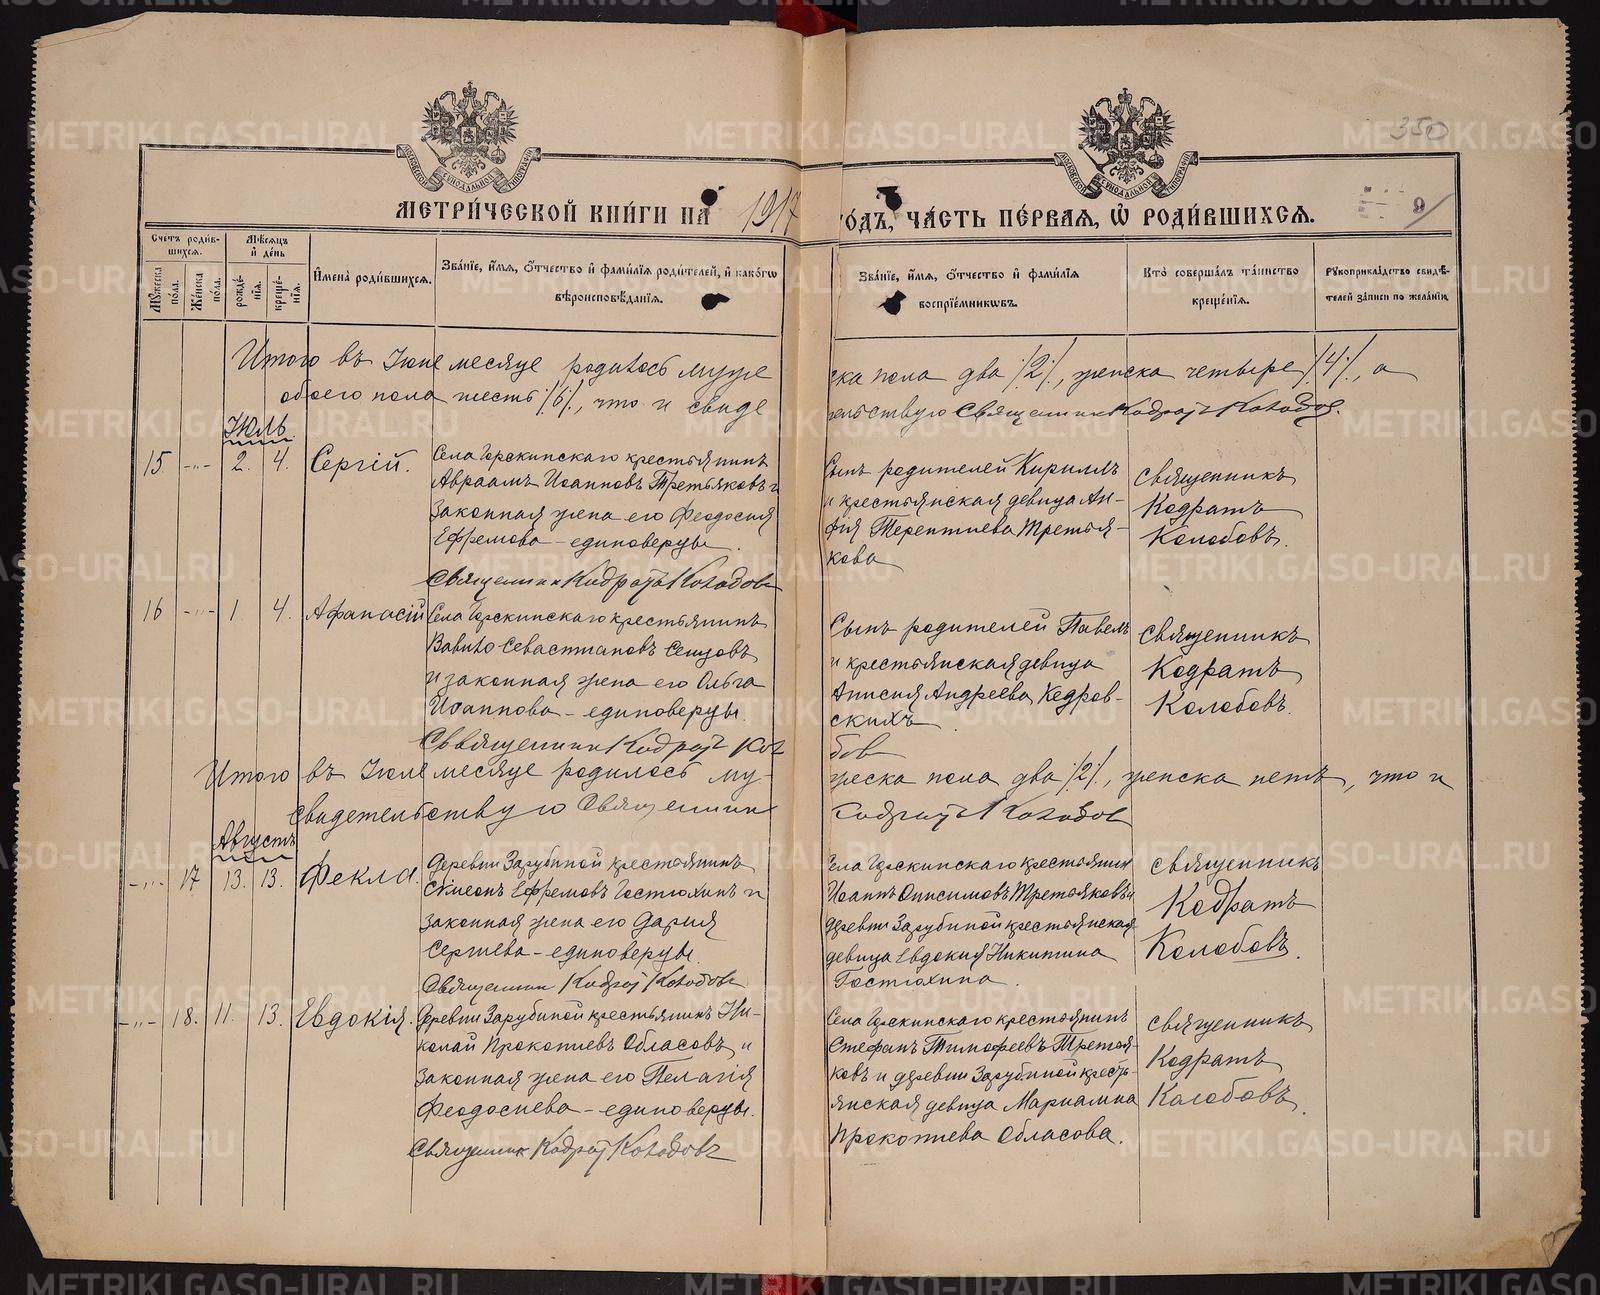 350
МЕТРИ́ЧЕСКОЙ КНИ́ГИ НА 1917 ГО́ДЪ, ЧА́СТЬ ПЕ́РВАЯ, Ѡ РОДИ́ВШИХСЯ.
Счетъ роди́вшихся.
Мѣ́сяцъ и де́нь
Му́жеска по́ла.
Же́нска по́ла.
рожде́нія.
креще́нія.
Имена̀ роди́вшихся.
Зва́ніе, и́мя, о́тчество и фами́лія роди́телей, и како́гѡ вѣроисповѣ́данія.
Зва́ніе, и́мя, о́тчество и фами́лія воспріе́мникѡвъ.
Кто̀ соверша́лъ та́инство креще́нія.
Рукоприкла́дство свидѣ́телей за́писи по жела́нію.
Итого въ Іюне месяце родилось муже ска пола два /2/, женска четыре /4/, а
обоего пола шесть /6/, что и свиде тельствую Священник Кодрат Колобов.
Іюль
15. -"- 2. 4. Сергій.
Села Герскинскаго крестьянинъ
Авраамъ Иоанновъ Третьяковъ и
законная жена его Феодосия
Ефремова - единоверцы.
Священник Кодратъ Колобовъ
Сынъ родителей Кириллъ
и крестьянская девица Ан-
фія Терентиева Третья-
кова
Священникъ
Кодратъ
Колобовъ.
16 -"- 1. 4. Афанасій
Села Герскинскаго крестьянинъ
Вавило Севастиановъ
и законная жена его Ольга
Иоаннова - единоверцы.
Священник Кодратъ Коло бов
Сынъ родителей Павелъ
и крестьянская девица
Анисия Андреева Кедров-
скихъ
Священникъ
Кодратъ
Колобовъ.
Итого въ Іюле месяце родилось му- жеска пола два /2/, женска нетъ, что и
свидетельствую Священник Кодратъ Колобов
Августъ
-"- 17 13. 13. Фекла.
Деревни Зарубиной крестьянинъ
Симеонъ Ефремовъ Гостюхинъ и
законная жена его Дария
Сергиева - единоверцы.
Священник Кодрат Колобовъ
Села Герскинскаго крестьянин
Иоаннъ Онисимовъ Третьяковъ и
деревни Зарубиной крестьянская
девица Евдокия Никитина
Гостюхина.
Священникъ
Кодратъ
Колобовъ.
-"- 18. 11. 13. Евдокія.
Деревни Зарубиной крестьянинъ Ни-
колай Прокопиевъ Обласовъ и
законная жена его Пелагія
Феодосиева - единоверцы.
Священник Кодрат Колобовъ
Села Герскинскаго крестьянинъ
Стефанъ Тимофеевъ Третья-
ковъ и деревни Зарубиной кресть-
янская девица Мариамна
Прокопиева Обласова.
Священникъ
Кодратъ
Колобовъ.
METRIKI.GASO-URAL.RU